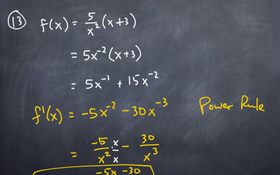 (13) f(x) = 5/x² (x+3)
= 5x⁻² (x+3)
= 5x⁻¹ + 15x⁻²
f'(x) = -5x⁻² - 30x⁻³ Power Rule
= -5/x² · x/x - 30/x³
-5x - 30